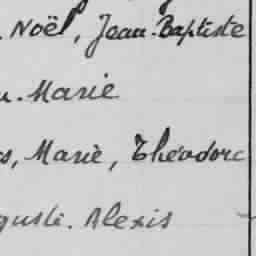 Noël, Jean-Baptiste
. Marie
, Marie, Théodore
. Alexis